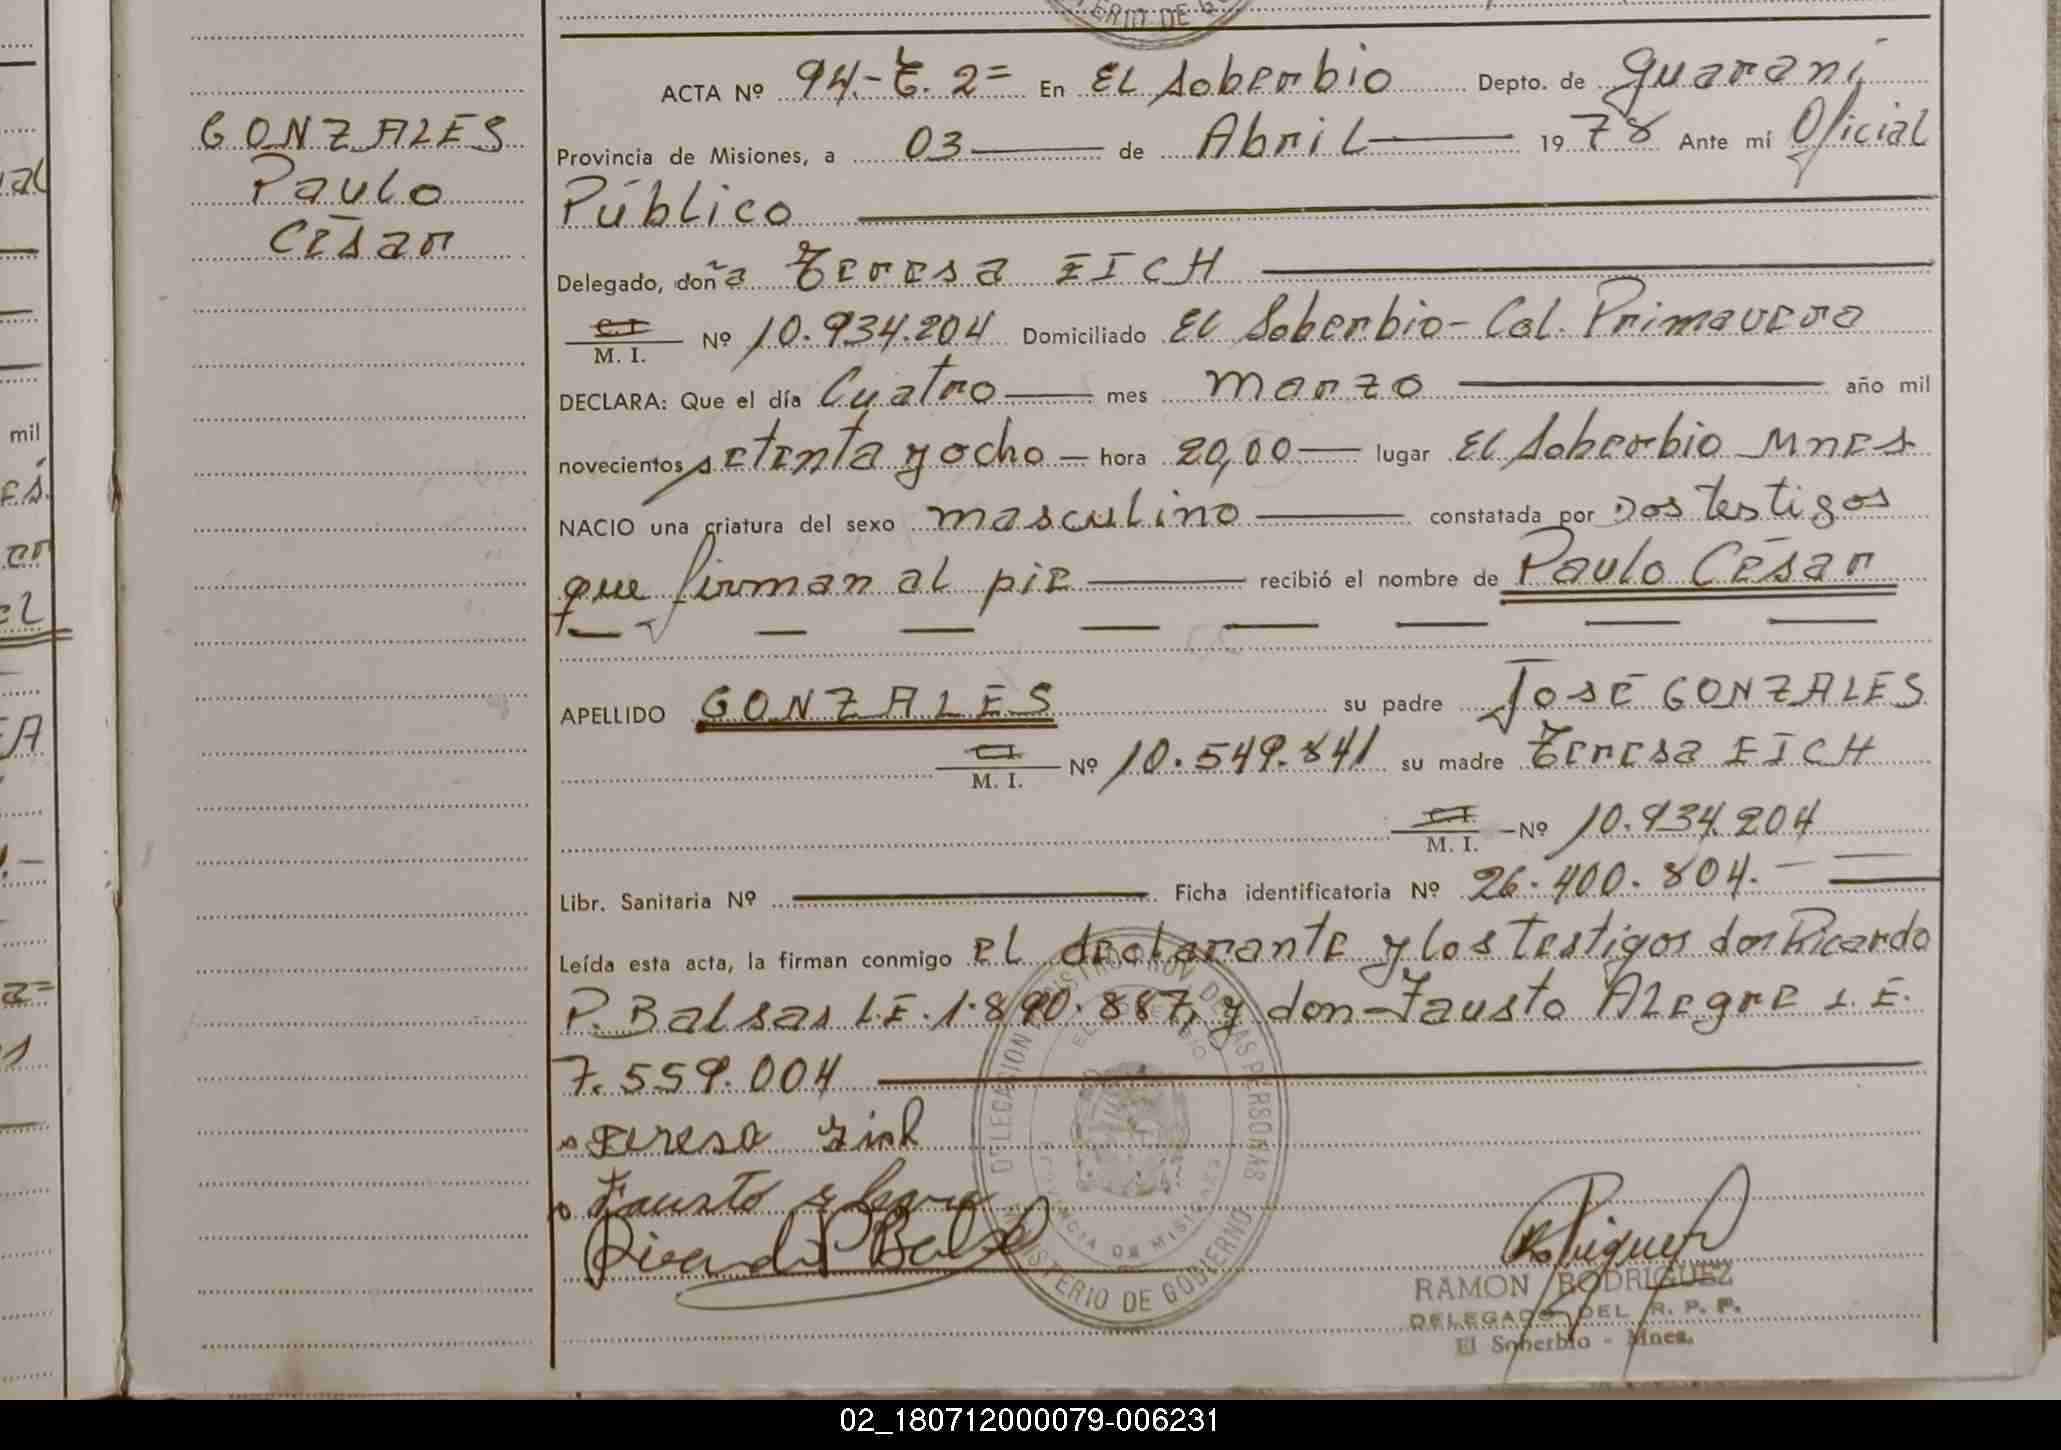 GONZALES
Paulo
César
ACTA Nº 94.-T. 2= En El Soberbio Depto. de Guaraní
Provincia de Misiones, a 03 de Abril 1978 Ante mí Oficial
Público
Delegado, doña Teresa EICH
C.I. M. I. Nº 10.934.204 Domiciliado El Soberbio- Col. Primavera
DECLARA: Que el día Cuatro mes marzo año mil
novecientos setenta y ocho hora 20,00 lugar El Soberbio Mnes
NACIO una criatura del sexo masculino constatada por Dos testigos
que firman al pie recibió el nombre de Paulo César
APELLIDO GONZALES su padre José GONZALES
C.I. M. I. Nº 10.549.841 su madre Teresa EICH
C.I. M. I. Nº 10.934.204
Libr. Sanitaria Nº Ficha identificatoria Nº 26.400.804.-
Leída esta acta, la firman conmigo el declarante y los testigos don Ricardo
P. Balsas L.E. 1.890.887, y don Fausto Alegre L.E.
7.559.004
Teresa
Fausto Alegre
Ricardo P Balsa
RAMON RODRIGUEZ
DELEGADO DEL R. P. P.
El Soberbio - Mnes.
DELEGACION REGISTRO PROV. DE LAS PERSONAS
EL SOBERBIO
PROVINCIA DE MISIONES
MINISTERIO DE GOBIERNO
mil
02_180712000079-006231